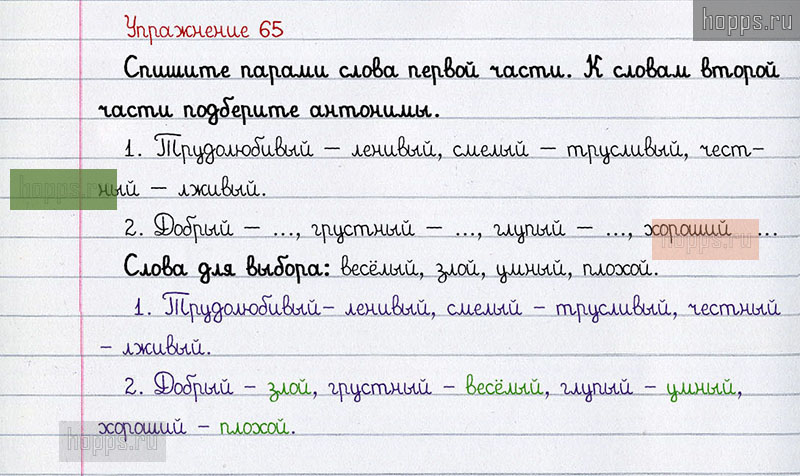 hopps.ru
Упражнение 65
Спишите парами слова первой части. К словам второй
части подберите антонимы.
1. Трудолюбивый – ленивый, смелый – трусливый, чест-
ный – лживый.
hopps.ru
2. Добрый – ..., грустный – ..., глупый – ..., хороший ...
hopps.ru
Слова для выбора: весёлый, злой, умный, плохой.
1. Трудолюбивый– ленивый, смелый – трусливый, честный
– лживый.
2. Добрый – злой, грустный – весёлый, глупый – умный,
хороший – плохой.
hopps.ru